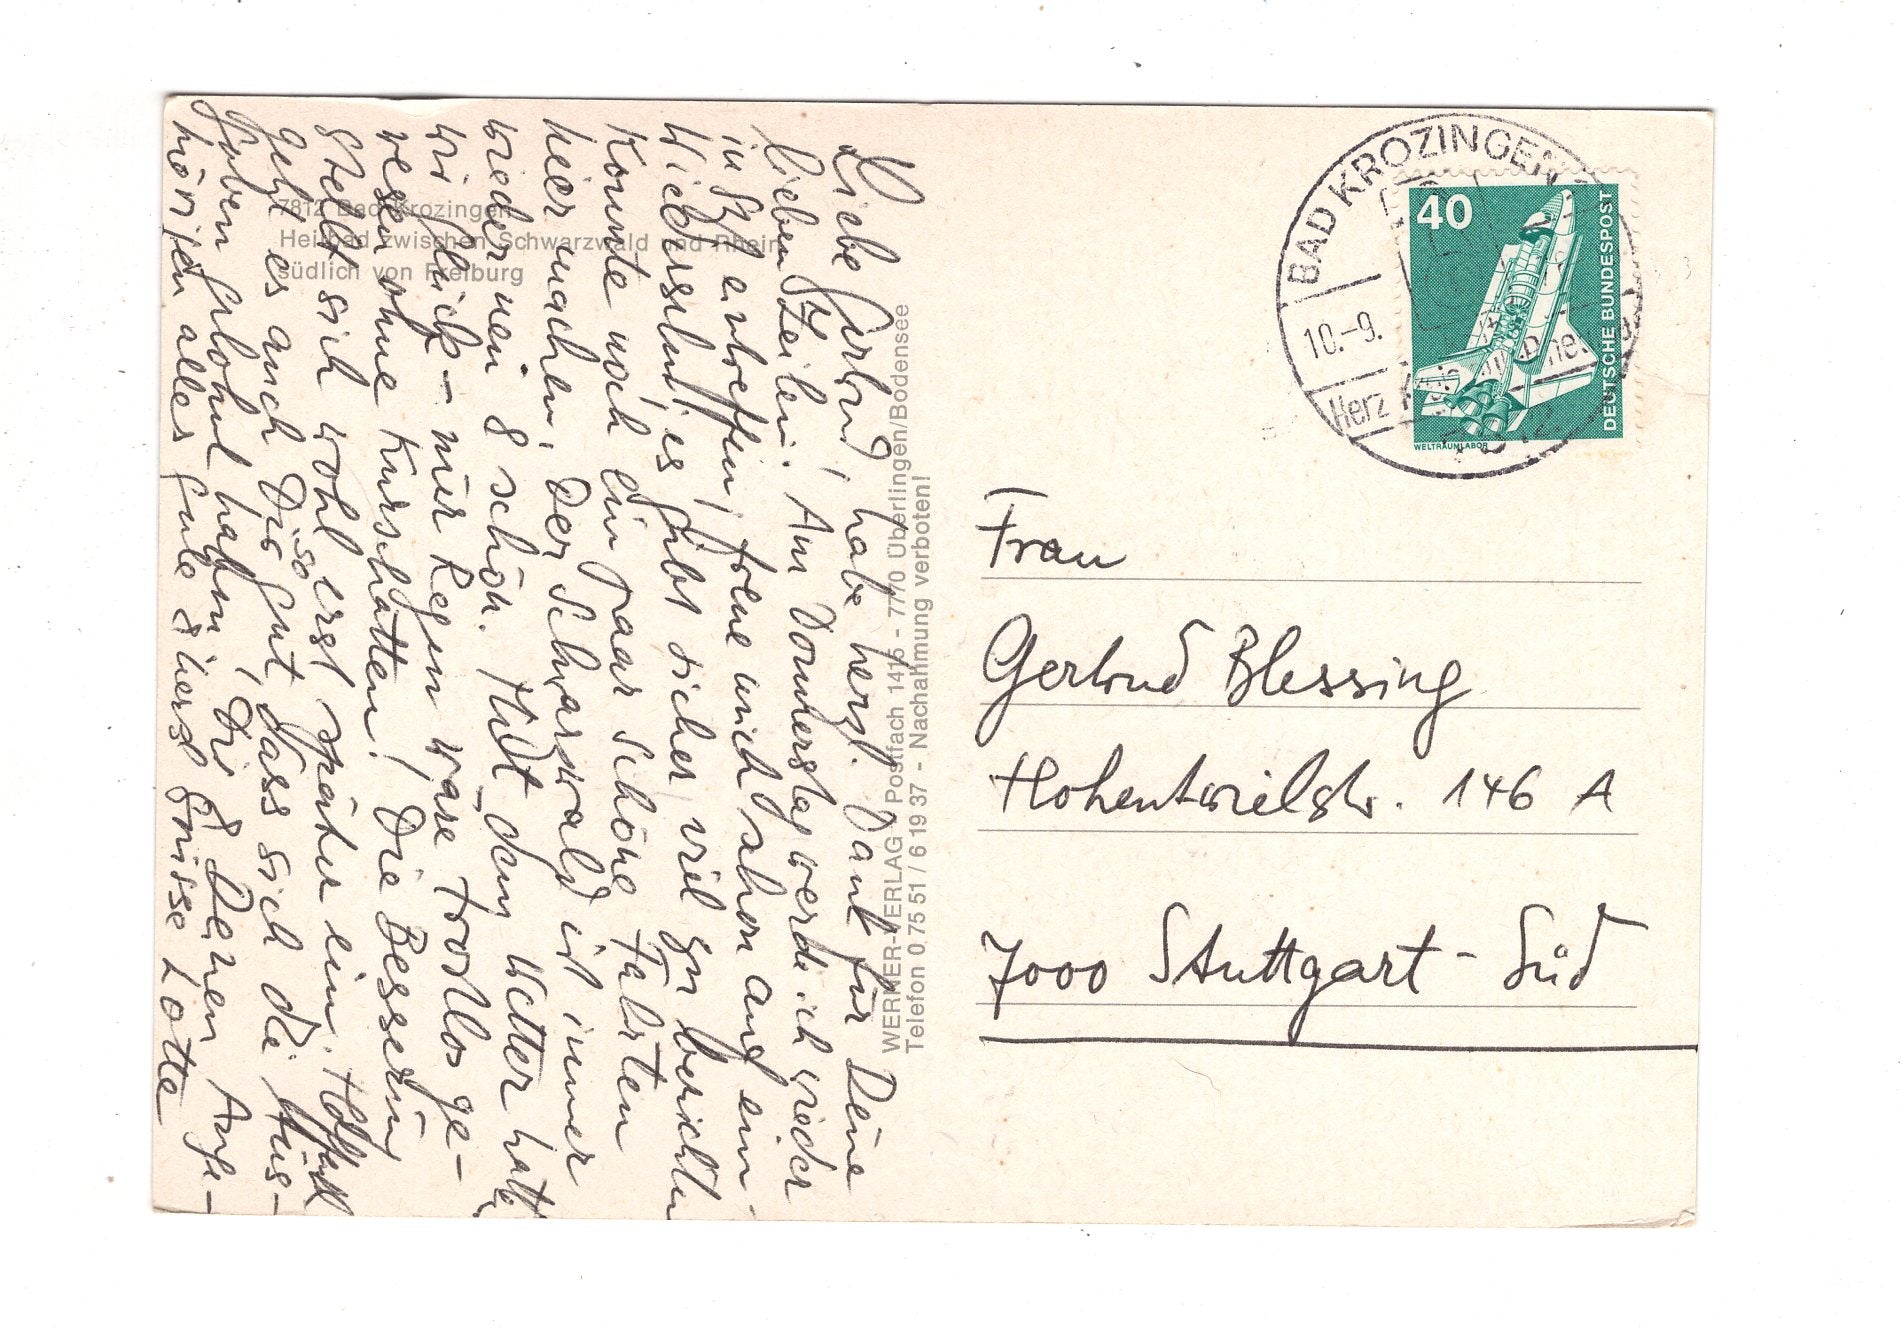 Liebe Gertrud, habe herzl. Dank für Deine
lieben Zeilen. Am Donnerstag werde ich wieder
in St. eintreffen, freue mich schon auf ein
Wiedersehn, es gibt sicher viel zu berichten
Konnte noch ein paar schöne Fahrten
hier machen, der Schwarzwald ist immer
wieder neu & schön. Mit dem Wetter hatten
wir Glück – nur Regen wäre trostlos ge-
wesen ohne Kurschatten! Die Besserung
stellt sich wohl erst später ein. Hoffentl.
geht es auch Dir so gut, dass sich die Aus-
gaben gelohnt haben, Dir & Deinen Ange-
hörigen alles Gute & herzl. Grüsse Lotte
7812 Bad Krozingen
Heilbad zwischen Schwarzwald und Rhein
südlich von Freiburg
WERNER-VERLAG Postfach 1415 - 7770 Überlingen/Bodensee
Telefon 0 75 51 / 6 19 37 - Nachahmung verboten!
BAD KROZINGEN
10.-9.
Herz
40
DEUTSCHE BUNDESPOST
WELTRAUMLABOR
Frau
Gertrud Blessing
Hohentwielstr. 146 A
7000 Stuttgart - Süd